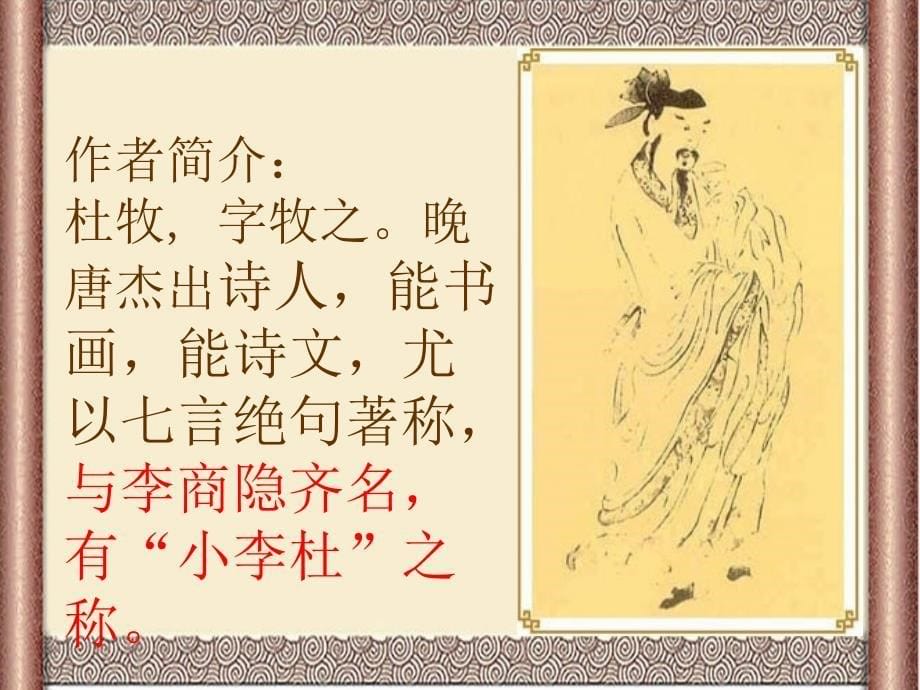 作者简介：
杜牧, 字牧之。晚
唐杰出诗人，能书
画，能诗文，尤
以七言绝句著称，
与李商隐齐名，
有“小李杜”之
称。